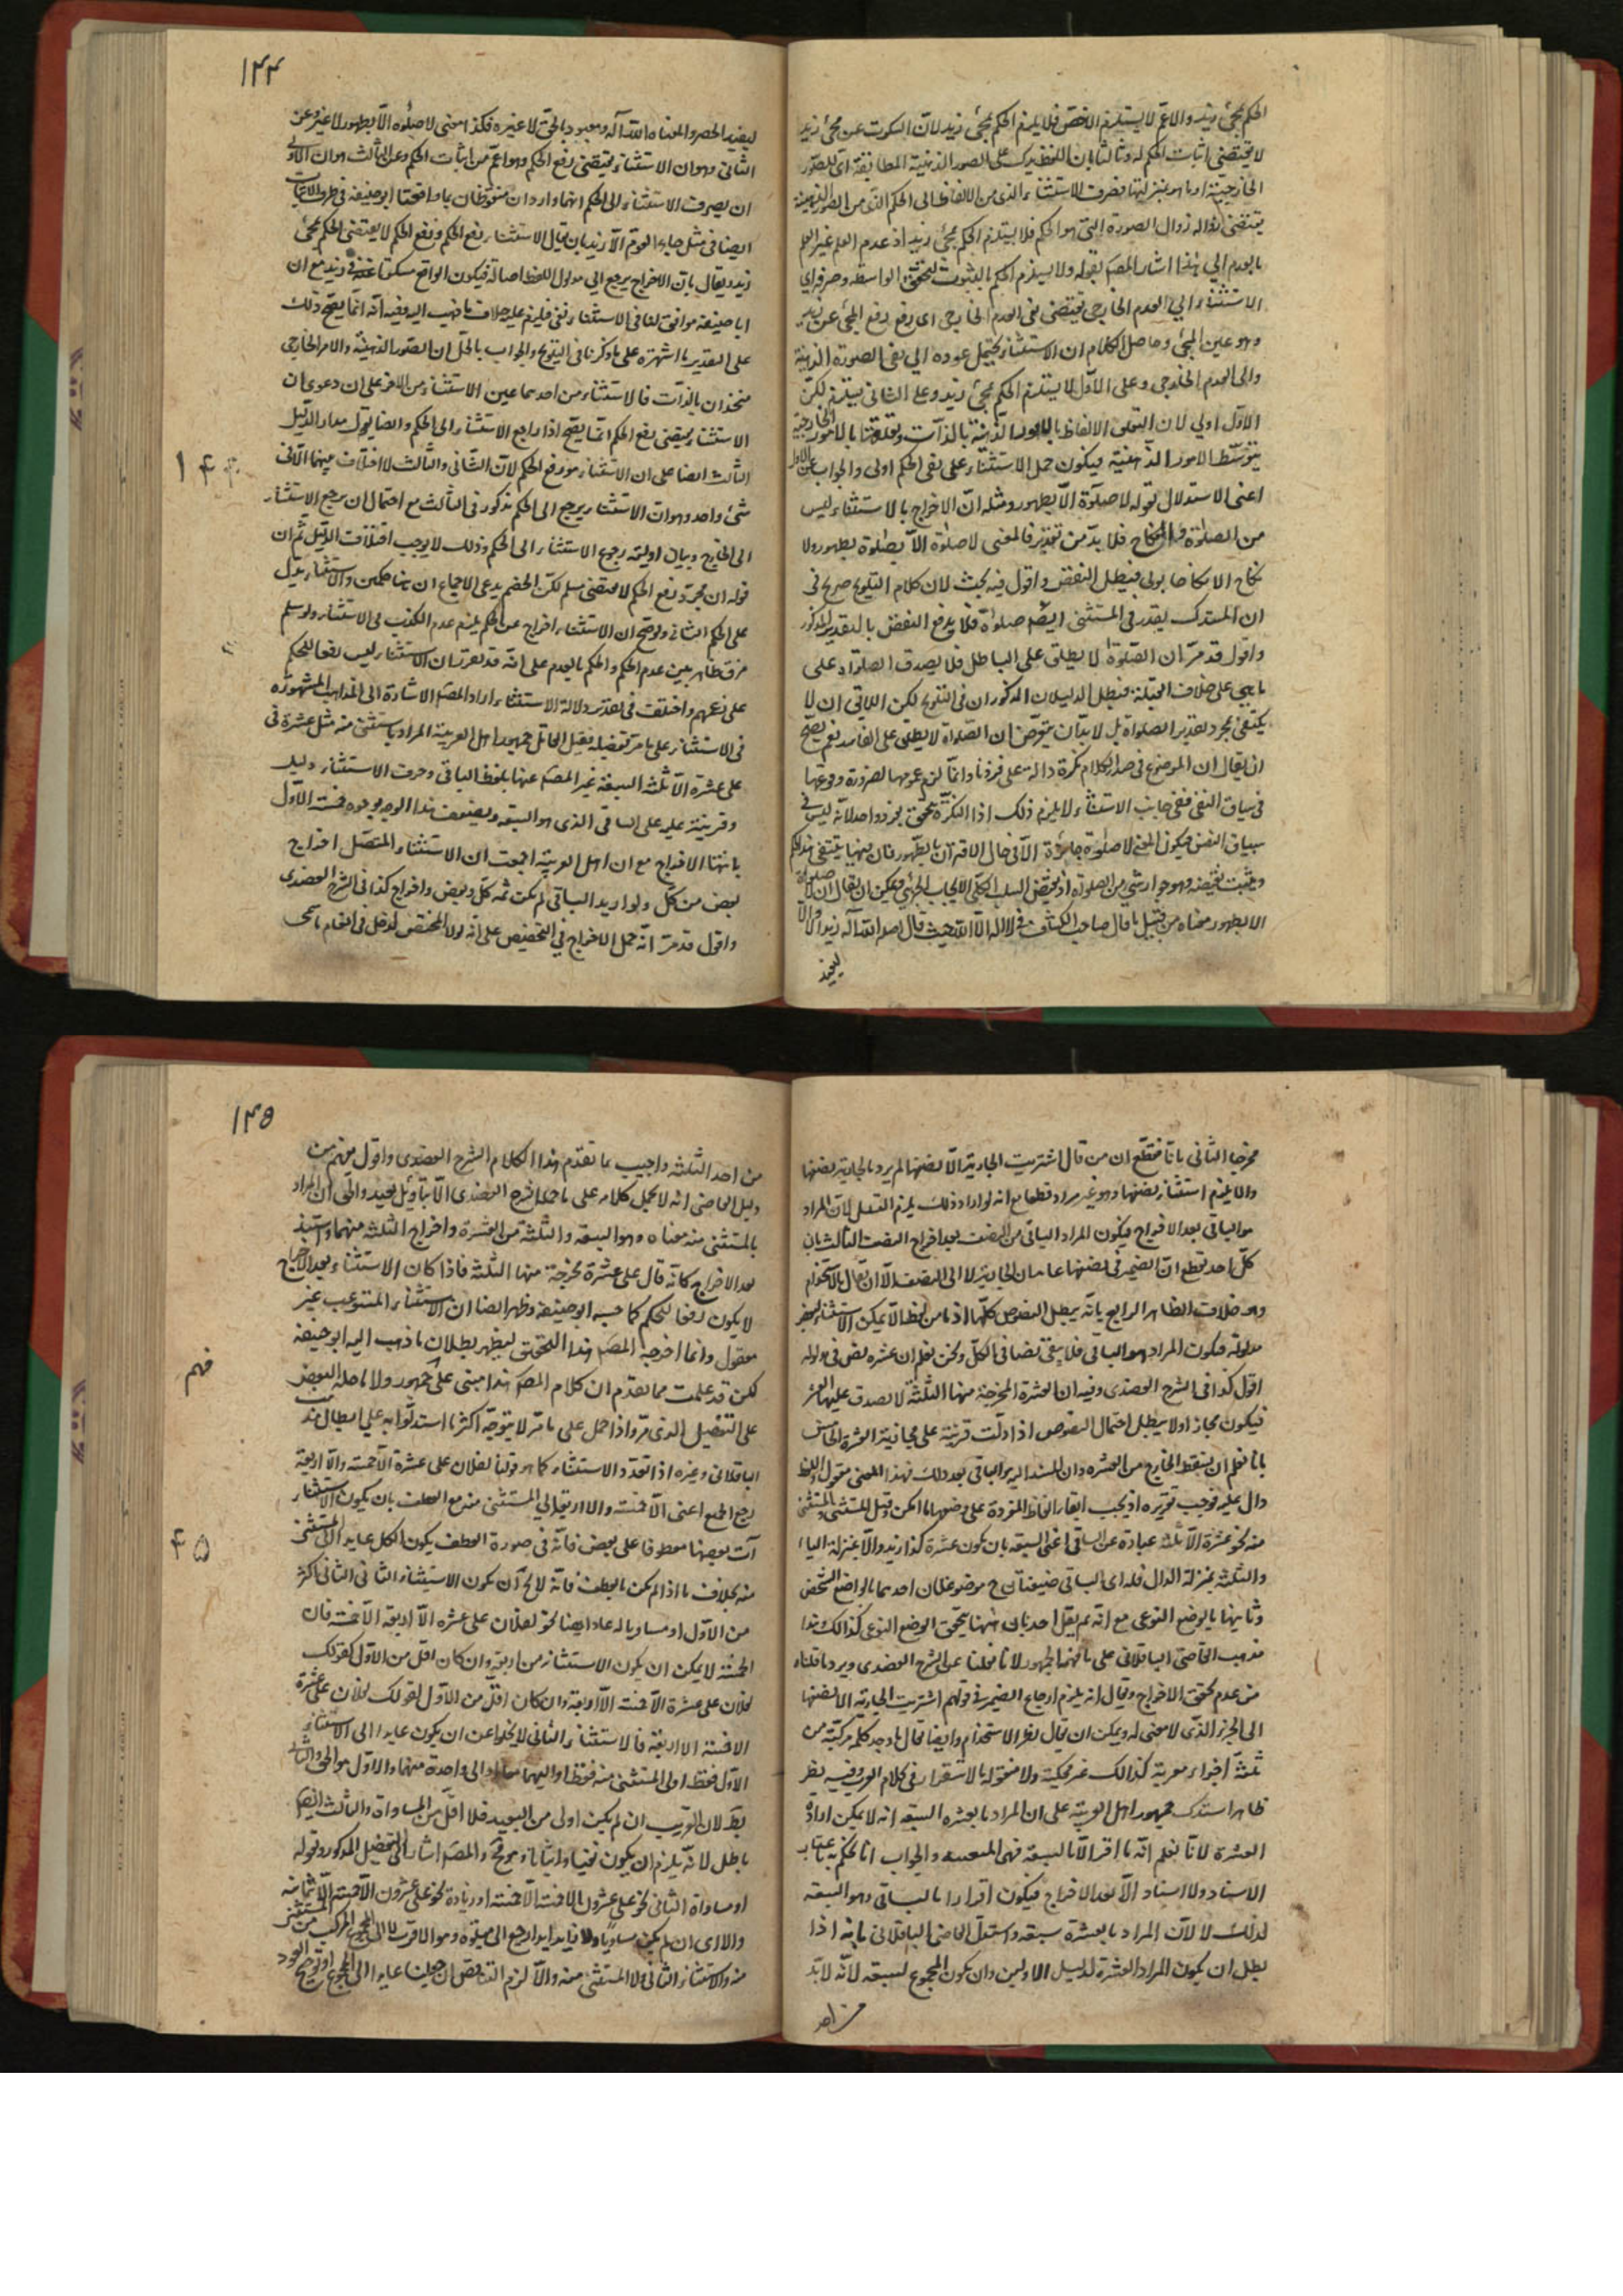 الحكم بمجئ زيد والاعم لا يستلزم الاخص فلا يلزم الحكم بمجئ زيد لان السكوت عن مجئ زيد
لا يقتضى اثبات الحكم له وثالثا بان اللفظ يدل على الصور الذهنية المطابقة اى للصور
الخارجية او ما هو بمنزلتها فصرف الاستثناء الذى من الالفاظ الى الحكم الذى من الصور الذهنية
يقتضى زوال الصورة التى هو الحكم فلا يستلزم الحكم بمجئ زيد اذ عدم العلم غير العلم
بالعدم الى هذا اشار المصـ بقوله ولا يستلزم الحكم بالثبوت لتحقق الواسطة وصرفه الى
الاستثناء الى العدم الخارجى يقتضى نفى العدم الخارجى اى رفع رفع المجئ عن زيد
وهو عين المجئ وحاصل الكلام ان الاستثناء يحتمل عوده الى نفى الصورة الذهنية
والى العدم الخارجى وعلى الاول لا يستلزم الحكم بمجئ زيد وعلى الثانى يستلزم لكن
الاول اولى لان تعلق الالفاظ بالامور الذهنية بالذات وتعلقها بالامور الخارجية
بتوسط الامور الذهنية فيكون حمل الاستثناء على نفى الحكم اولى والجواب عن الاول
اعنى الاستدلال بقوله لا صلوة الا بطهور ومثله ان الاخراج بالاستثناء ليس
من الصلوة والنكاح فلا بد من تقدير فالمعنى لا صلوة الا صلوة بطهور ولا
نكاح الا نكاحا بولى فبطل النقض واقول فيه بحث لان كلام التلويح صريح فى
ان المستدل يقدر فى المستثنى ايضا صلوة فلا يدفع النقض بالتقدير المذكور
واقول قد مر ان الصلوة لا يطلق على الباطل فلا يصدق الصلوة على
ما يجئ على خلاف القبلة فبطل الدليلان المذكوران فى التلويح لكن اللائق ان لا
يكتفى بمجرد تقدير الصلوة بل لا بد ان يتعرض ان الصلوة لا يطلق على الفاسد نعم يصح
ان يقال ان الموضوع فى صدر الكلام نكرة دالة على فرد ما وانما لزم عمومها لضرورة وقوعها
فى سياق النفى ففى جانب الاستثناء لا يلزم ذلك اذ النكرة تتحقق بفرد واحد لانه ليس فى
سياق النفى فيكون المعنى لا صلوة جائزة الا فى حال الاقتران بالطهور فان
وهو جواز شئ من الصلوة اذ نقيض السلب الكلى الايجاب الجزئى ويمكن ان يقال ان لا صلوة
الا بطهور معناه من قبيل ما قال صاحب الكشاف فى لا اله الا الله حيث قال اصله الله اله
ليفيد
١٤٤
ليفيد الحصر والمعناه الله اله ومعبود بالحق لا غيره فكذا معنى لا صلوة الا بطهور لا غير وعن
الثانى وهو ان الاستثناء يقتضى رفع الحكم وهو اعم من اثبات الحكم وعن الثالث هو ان الاولى
ان يصرف الاستثناء الى الحكم
ايضا فى مثل جاء القوم الا زيد بان يقال الاستثناء رفع الحكم ورفع الحكم لا يقتضى الحكم بمجئ
زيد ويقال بان الاخراج يرجع الى مدلول اللفظ اصالة فيكون الواقع مسكوتا عنه فى زيد مع ان
ابا حنيفة موافق لنا فى الاستثناء نفى فليزم عليه خلاف ما ذهب اليه وفيه انه انما يصح ذلك
على التقدير ما اشتهر على ما ذكرنا فى التلويح والجواب بالحل ان الصور الذهنية والامر الخارجى
متحدان بالذات فالاستثناء من احدهما عين الاستثناء من الاخر على ان دعوى ان
الاستثناء يقتضى رفع الحكم انما يصح اذا راجع الاستثناء الى الحكم وايضا يقول مدار الدليل
١٤٤
الثالث ايضا على ان الاستثناء هو رفع الحكم لان الثانى والثالث لا اختلاف بينهما الا فى
شئ واحد وهو ان الاستثناء يرجع الى الحكم مذكور فى الثالث مع احتمال ان يرجع الاستثناء
الى الخارج وبيان اولية رجوع الاستثناء الى الحكم وذلك لا يوجب اختلاف الدليل ثم ان
قوله ان مجرد رفع الحكم لا يقتضى مسلم لكن الخصم يدعى الاجماع ان هنا حكمين والاستثناء يدل
على الحكم الثانى ولو صح ان الاستثناء اخراج عن الحكم يلزم عدم الكذب فى الاستثناء ولو سلم
فرق ظاهر بين عدم الحكم والحكم بالعدم على انه قد تعرف ان الاستثناء ليس رفعا للحكم
على زعمهم واختلف فى تقدير دلالة الاستثناء اراد المصـ الاشارة الى المذاهب المشهورة
فى الاستثناء على ما مر تفضيله بقيل القائل جمهور اهل العربية المراد بالمستثنى منه مثل عشرة فى
على عشرة الا ثلثة السبعة عبر المصـ عنها بلفظ الباقى وحرف الاستثناء دليل
وقرينة عليه على الباقى الذى هو السبعة ويضعف هذا الوجه بوجوه خمسة الاول
بانتفاء الاخراج مع ان اهل العربية اجمعت ان الاستثناء المتصل اخراج
بعض من كل ولو اريد الباقى لم يكن ثمه كل وبعض واخراج كذا فى الشرح العضدى
واقول قد مر انه حمل الاخراج فى التخصيص على انه لولا المخصص لدخل فى العام
مخرجا الثانى بانا نقطع ان من قال اشتريت الجارية الا نصفها لم يرد بالجارية نصفها
والا يلزم استثناء نصفها من نصفها وهو غير مراد قطعا مع انه لو اراد ذلك يلزم التسلسل لان المراد
هو الباقى بعد الاخراج فيكون المراد الباقى من النصف بعد اخراج النصف الثالث بان
كل احد يقطع ان الضمير فى نصفها عائد الى الجارية لا الى النصف الا ان يقال بالاستخدام
وهو خلاف الظاهر الرابع بانه يبطل النصوص كلها اذ ما من لفظ الا يمكن الاستثناء لبعض
مدلوله فيكون المراد هو الباقى فلا يبقى نصا فى الكل ونحن نعلم ان عشرة نص فى مدلوله
اقول كذا فى الشرح العضدى وفيه ان العشرة المخرجة منها الثلثة لا يصدق عليها العشر
فيكون مجازا ولا يبطل احتمال النصوص اذا دلت قرينة على مجازية العشرة الخامس
بانا نعلم ان يسقط الخارج من العشرة وان المسند اليه الباقى بعد ذلك فهذا المعنى معقول واللفظ
دال عليه فوجب تقريره اذ يجب ابقاء الالفاظ المفردة على وضعها ما امكن وقيل المستثنى والمستثنى
منه نحو عشرة الا ثلثة عبارة عن الباقى اعنى السبعة بان يكون عشرة كذا زيد والا بمنزلة اليا
والثلثة بمنزلة الدال فله اى الباقى صيغتان ح موضوعتان احديهما بالوضع الشخصى
وثانيها بالوضع النوعى مع انه لم يقل احد بان ههنا يتحقق الوضع النوعى كذلك وهذا
مذهب القاضى الباقلانى على ما فهمه الجمهور لانا نقلنا عن الشرح العضدى ويرد ما قلناه
من عدم تحقق الاخراج ويقال انه يلزم ارجاع الضمير فى قولهم اشتريت الجارية الا نصفها
الى الجزء الذى لا معنى له ويمكن ان يقال بطور الاستخدام وايضا يقال ما وجد كلمة مركبة من
ثلثة اجزاء معربة كذلك غير محكية ولا منقولة بالاستقراء فى كلام العرب وفيه نظر
ظاهر استدل جمهور اهل العربية على ان المراد بالعشرة السبعة انه لا يمكن ارادة
العشرة لانا نعلم انه ما اقر الا بالسبعة فهى المتعينة والجواب انا نحكم به باعتبار
الاسناد ولا اسناد الا بعد الاخراج فيكون اقرارا بالباقى وهو السبعة
لذلك لا لان المراد بالعشرة سبعة واستدل القاضى الباقلانى بانه اذا
بطل ان يكون المراد العشرة لدليل الاولين وان يكون المجموع لسبعة لانه لا بد
من احد
١٤٥
من احد الثلثة واجيب بما تقدم هذا الكلام الشرح العضدى واقول
دليل القاضى انه لا يحمل كلامه على ما حمله الشرح العضدى الا بتاويل بعيد والحق ان المراد
بالمستثنى منه معناه وهو السبعة والثلثة من العشرة واخراج الثلثة منهما واسند
بعد الاخراج كانه قال على عشرة مخرجة منها الثلثة فاذا كان الاستثناء بعد الاخراج
لا يكون رفعا للحكم كما حسبه ابو حنيفة وظهر ايضا ان الاستثناء المستوعب غير
معقول وانما اخرج المصـ هذا التحقيق ليظهر بطلان ما ذهب اليه ابو حنيفة
فهم
لكن قد علمت مما تقدم ان كلام المصـ هذا مبنى على الجمهور ولا ما حمله البعض
على التفصيل الذى مر واذا حمل على ما مر لا يتوجه اكثر ما استدلوا به على ابطال مذهب
الباقلانى وغيره اذا تعدد الاستثناء كما هو قولنا لفلان على عشرة الا خمسة والا اربعة
رجع الجميع اعنى الا خمسة والا اربعة الى المستثنى منه مع العطف بان يكون الاستثناء
٤٥
آت بعضها معطوفا على بعض فانه فى صورة العطف يكون الكل عايدا الى المستثنى
منه بخلاف ما اذا لم يكن بالعطف فانه لا يخ ان يكون الاستثناء الثانى الثانى اكثر
من الاول او مساويا له عاد ايضا نحو لفلان على عشرة الا اربعة الا خمسة فان
الخمسة لا يمكن ان يكون الاستثناء من اربعة وان كان اقل من الاول كقولك
لفلان على عشرة الا خمسة الا اربعة وان كان اقل من الاول كقولك لفلان على عشرة
الا خمسة الا اربعة فالاستثناء الثانى لا يخلوا عن ان يكون عايدا الى الاستثناء
الاول فقط او الى المستثنى منه فقط او اليهما معا او الى واحدة منهما والاول هو الحق والثانى
بط لان القريب ان لم يكن اولى من البعيد فلا اقل من المساواة والثالث ايضا
باطل لانه يلزم ان يكون نفيا واثباتا وهو قبيح والمصـ اشار الى التفضيل المذكور بقوله
او مساواة الثانى نحو على عشرون الا خمسة الا خمسة او زيادة نحو على عشرون الا خمسة الا ثمانية
والا اى ان لم يكن مساويا ولا زايدا يرجع الى متلوه وهو الاقرب لا الى المجموع المركب من المستثنى
منه والاستثناء الثانى ولا المستثنى منه والا لزم التناقض ان جعلنا عايدا الى المجموع او ترجيح البعيد